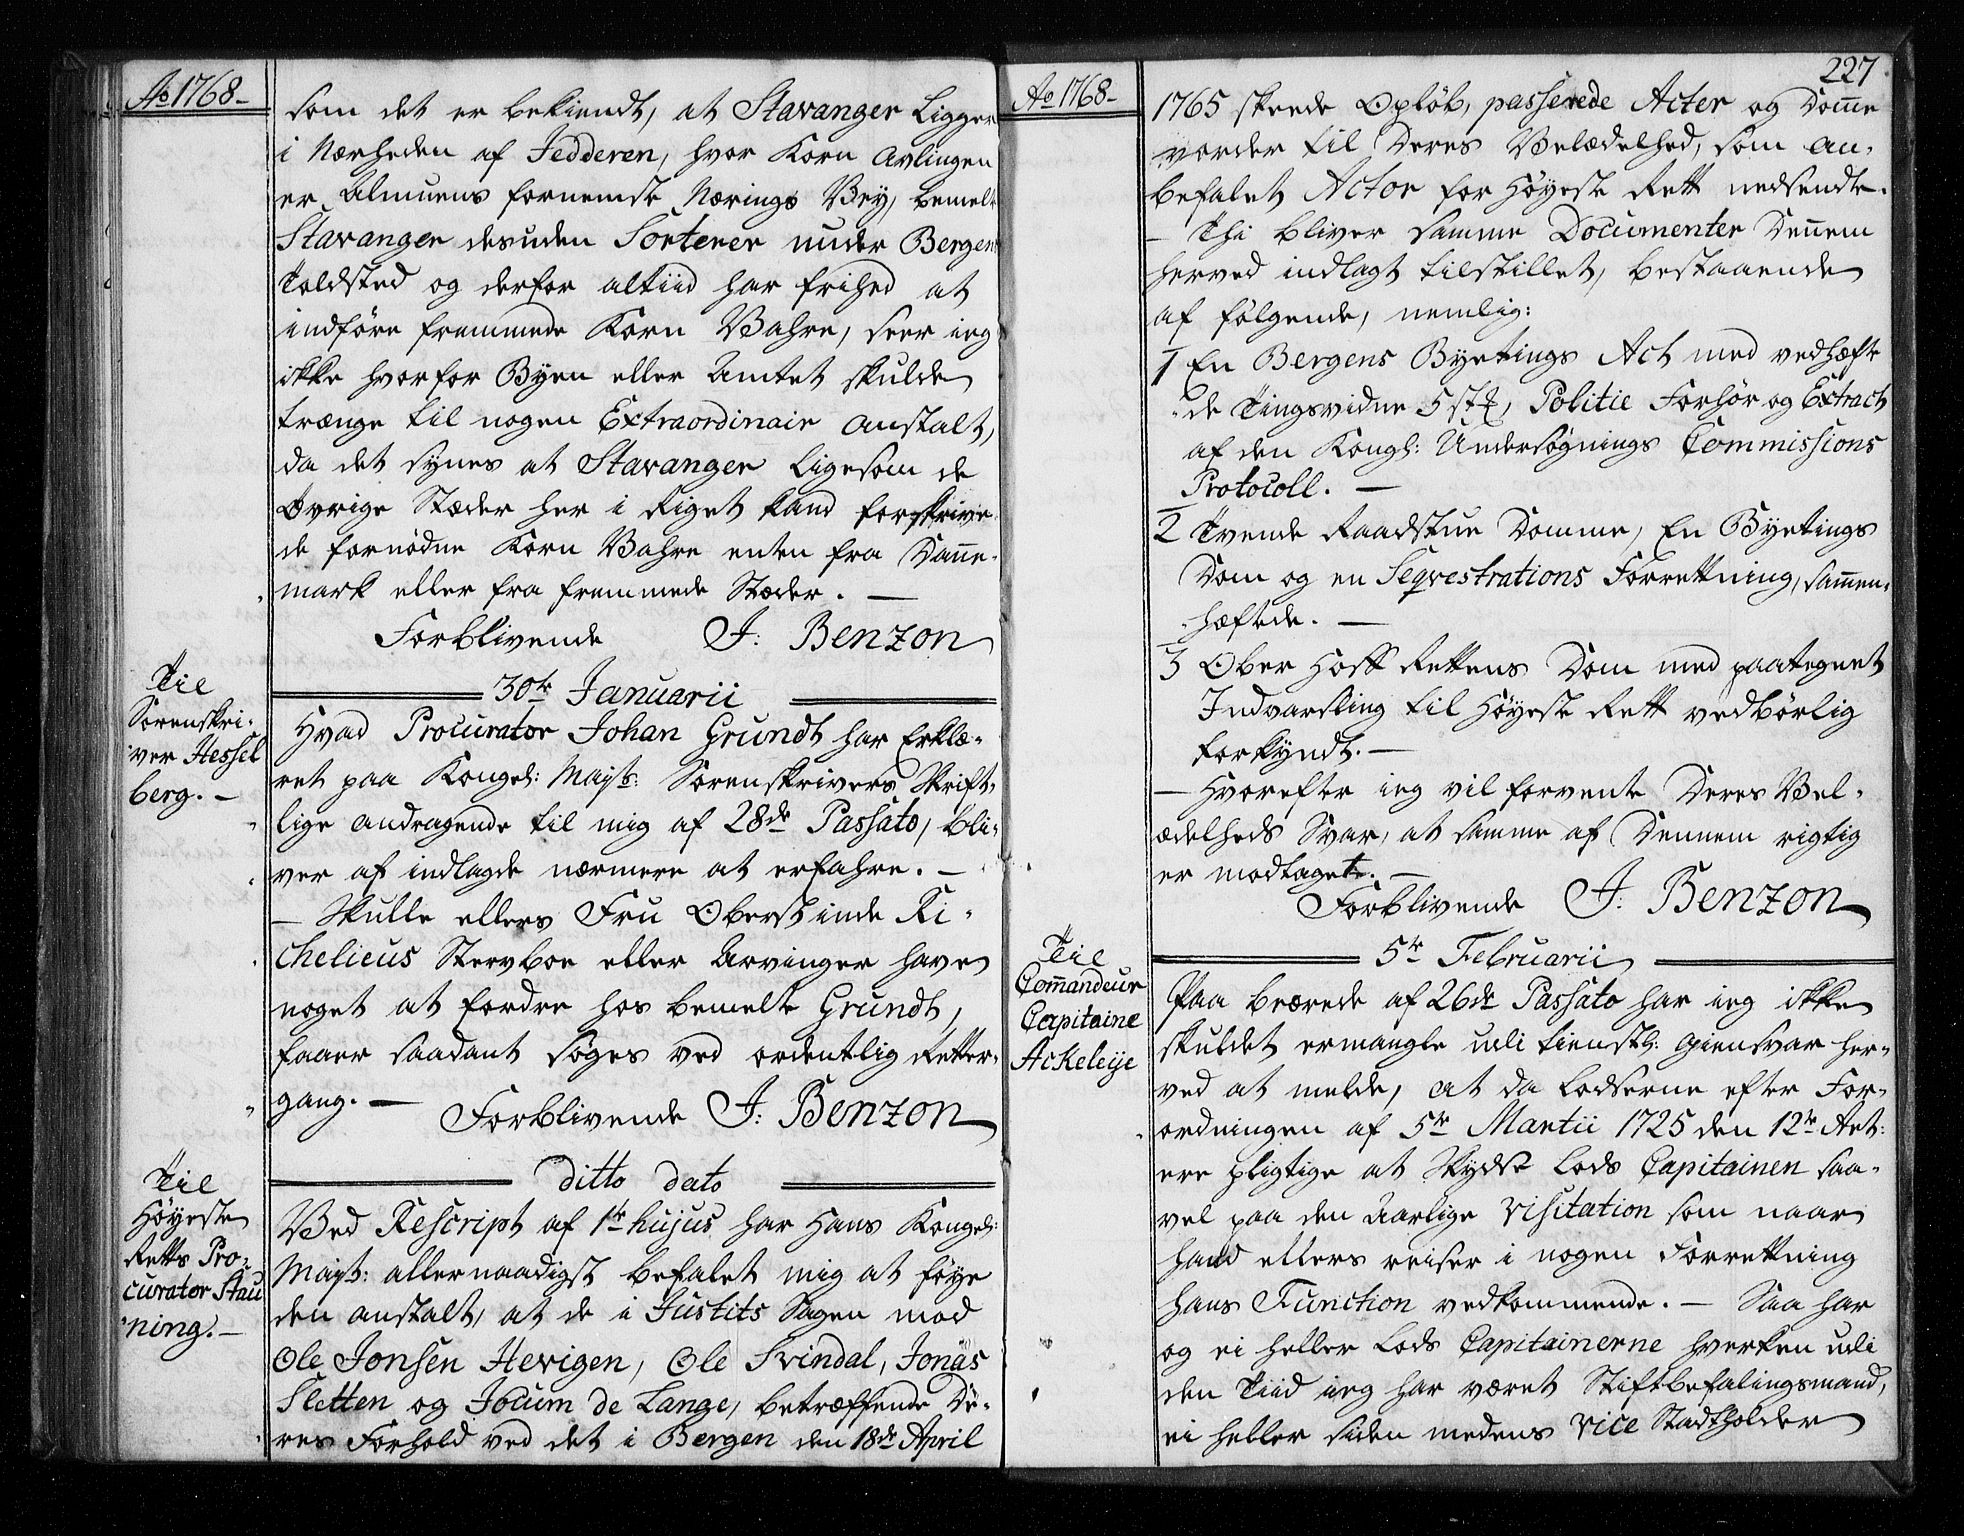 Ao 1768-
som det er bekiendt, at Stavanger ligger
i Nærheden af Jedderen, hvor Korn Avlingen
er Almuens fornemste Nærings Vey, bemelte
Stavanger desuden Sorterer under Bergens
Toldsted og derfor altiid har frihed at
indføre fremmede Korn Vahre, seer ieg
ikke hvorfor Byen eller Amtet skulde
trænge til nogen Extraordinair Anstalt,
da det synes at Stavanger ligesom de
øvrige Stæder her i Riget kand forskrive
de fornødne Korn Vahre enten fra Danne-
mark eller fra fremmede Stæder. —
Forblivende J: Benzon
Til
Sorenskri-
ver Hessel
berg. —
30te Januarii
Hvad Procurator Johan Grundt har Erklæ-
ret paa Kongel: Mayts: Sorenskrivers Skrift-
lige andragende til mig af 28de Passato, bli-
ver af indlagde nærmere at erfahre. —
— Skulle ellers Fru Oberstinde Ri-
chelieus Sterboe eller Arvinger have
noget at fordre hos bemelte Grundt,
faaer saadant søges ved ordentlig Retter-
gang. — Forblivende J: Benzon
Til
Høyeste
Retts Pro-
curator Stau
ning. —
ditto dato
Ved Rescript af 1te hujus har Hans Kongel:
Mayts: allernaadigst befalet mig at føye
den anstalt, at de i Justits Sagen mod
Ole Jonsen Hevigen, Ole Svindal, Jonas
Sletten og Jocum de Lange, betræffende De-
res Forhold ved det i Bergen den 18de April
227
Ao 1768-
1765 skeede Opløb, passerede Acter og Domme
vorder til Deres Velædelhed, som an-
befalet Actor for Høyeste Rett nedsendte.
— Thi bliver samme Documenter Dennem
herved indlagt tilstillet, bestaaende
af følgende, nemlig:
1 En Bergens Byetings Act med vedhæfte
de Tingsvidne 5 stk, Politie Forhør og Extract
af den Kongl: Undersøgnings Commissions
Protocoll. —
2 Tvende Raadstue Domme, En Byetings
Dom og en Seqvestrations Forrettning, sammen-
hæftede. —
3 Ober Hoff Rettens Dom med paategnet
Indvarsling til Høyeste Rett vedbørlig
forkyndt. —
— Hvorefter ieg vil forvente Deres Vel-
ædelheds Svar, at samme af Dennem rigtig
er modtaget. —
Forblivende J: Benzon
Til
Commandeur
Capitaine
Ackeleije
5te Februarii
Paa beærede af 26de Passato har ieg ikke
skuldet ermangle udi tienstl: giensvar her-
ved at melde, at da Lodserne efter For-
ordningen af 5te Martii 1725 den 12te Art:
ere pligtige at Skydse Lods Capitainen saa-
vel paa den Aarlige Visitation som naar
hand ellers reiser i nogen Forrettning
hans Function vedkommende. — Saa har
og ei heller Lods Capitainerne hverken udi
den Tiid ieg har været Stiftbefalingsmand,
ei heller siden medens Vice Stadtholder